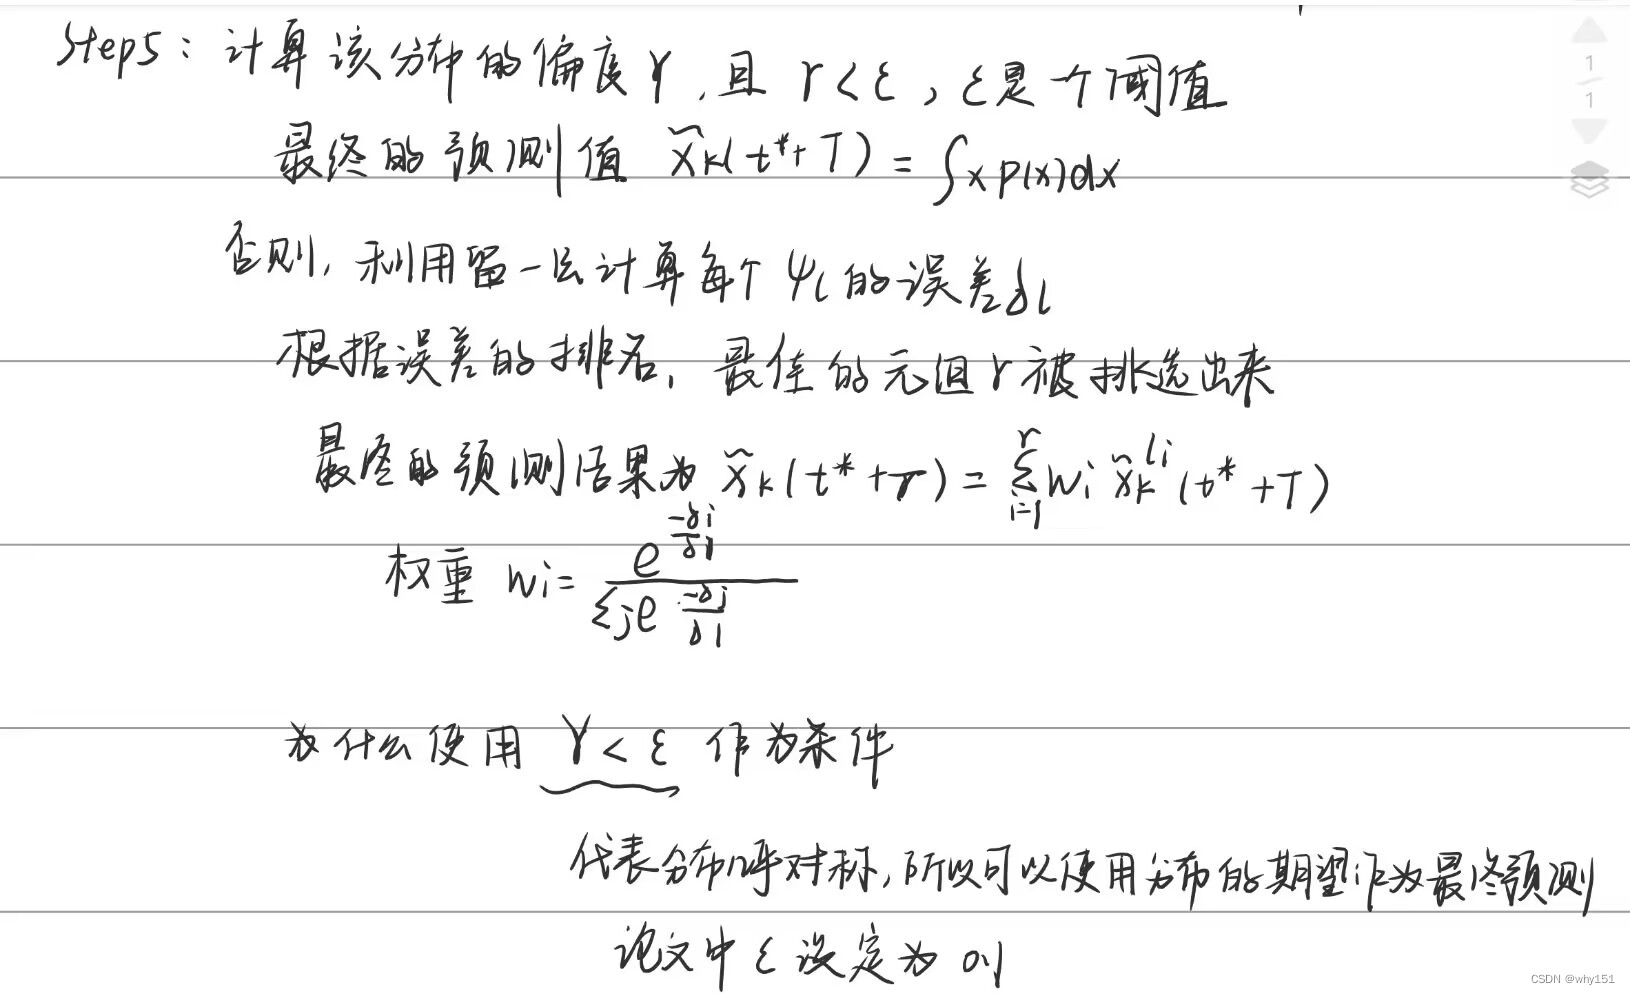 Step5：计算该分布的偏度γ，且 γ<ε，ε是一个阈值
最终的预测值 x̃k(t*+T) = ∫x p(x)dx
否则，利用留一法计算每个 ψl 的误差δl
根据误差的排名，最佳的元组 r 被挑选出来
最终的预测结果为 x̃k(t*+T) = Σ_{i=1}^{r} wi x̃k^{li}(t*+T)
权重 wi = e^{-δi/δ1} / Σj e^{-δj/δ1}
为什么使用 γ<ε 作为条件
代表分布呼对称，所以可以使用分布的期望作为最终预测
论文中 ε 设定为 0.1
1
1
CSDN @why151